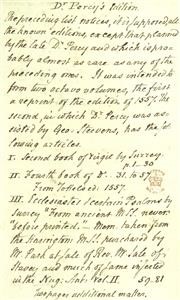 Dr Percy's Edition
The preceding list notices, it is supposed, all
the known editions, except that planned
by the late Dr Percy and which is pro-
bably almost as rare as any of the
preceding ones. It was intended to
form two octavo volumes, the first
a reprint of the edition of 1557. The
second, in which Dr Percy was as-
sisted by Geo. Steevens, has the fol
lowing articles
I. Second book of Virgil by Surrey.
p. 1. 30
II. Fourth book of Do. 31. to 57
From Tottel ed. 1557.
III. Ecclesiastes & certain Psalms by
Surrey "From ancient MSS. never
before printed." — Mem. taken from
the Harington MSS. purchased by
Mr Park at sale of
and much of same inserted
in the Nug. Ant. Vol. II. 59. 81
Two pages additional matter.